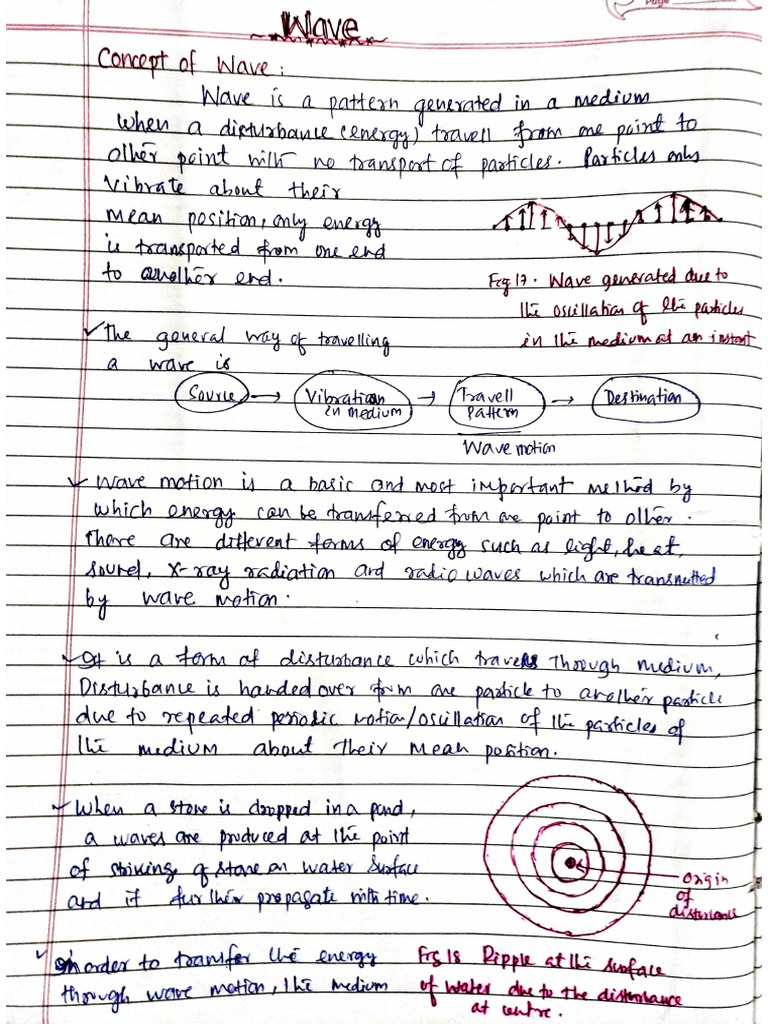 Page
Wave
Concept of Wave:
Wave is a pattern generated in a medium
when a disturbance (energy) travell from one point to
other point with no transport of particles. Particles only
vibrate about their
mean position, only energy
is transported from one end
to another end.
Fig 17. Wave generated due to
the oscillation of the particles
in the medium at an instant
✓ The general way of travelling
a wave is
Source → Vibration in medium → Travell pattern → Destination
Wave motion
✓ Wave motion is a basic and most important method by
which energy can be transferred from one point to other.
There are different forms of energy such as light, heat,
sound, X-ray radiation and radio waves which are transmitted
by wave motion.
✓ It is a form of disturbance which travels through medium,
Disturbance is handed over from one particle to another particle
due to repeated periodic motion/oscillation of the particles of
the medium about their mean position.
✓ When a stone is dropped in a pond,
a waves are produced at the point
of striking of stone on water surface
and it further propagate with time.
Origin
of
disturbance
✓ In order to transfer the energy
through wave motion, the medium
Fig 18 Ripple at the surface
of water due to the disturbance
at centre.